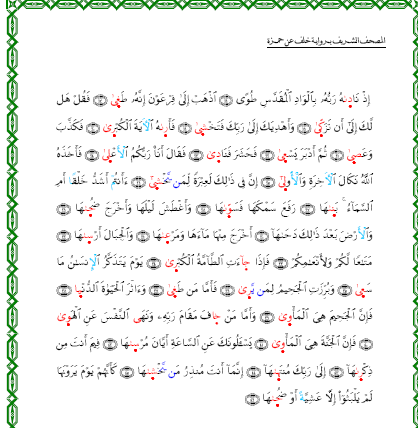 المصحف الشريف برواية خلف عن حمزة
إِذْ نَادِىٰهُ رَبُّهُۥ بِٱلْوَادِ ٱلْمُقَدَّسِ طُوًى ۝ ٱذْهَبْ إِلَىٰ فِرْعَوْنَ إِنَّهُۥ طَغِىٰ ۝ فَقُلْ هَل
لَّكَ إِلَىٰٓ أَن تَزَكِّىٰ ۝ وَأَهْدِيَكَ إِلَىٰ رَبِّكَ فَتَخْشِىٰ ۝ فَأَرِىٰهُ ٱلْأٓيَةَ ٱلْكُبْرِىٰ ۝ فَكَذَّبَ
وَعَصِىٰ ۝ ثُمَّ أَدْبَرَ يَسْعِىٰ ۝ فَحَشَرَ فَنَادِىٰ ۝ فَقَالَ أَنَا۠ رَبُّكُمُ ٱلْأَعْلِىٰ ۝ فَأَخَذَهُ
ٱللَّهُ نَكَالَ ٱلْأٓخِرَةِ وَٱلْأُولِىٰٓ ۝ إِنَّ فِى ذَٰلِكَ لَعِبْرَةً لِّمَن يَخْشِىٰٓ ۝ ءَأَنتُمْ أَشَدُّ خَلْقًا أَمِ
ٱلسَّمَآءُ ۚ بَنِىٰهَا ۝ رَفَعَ سَمْكَهَا فَسَوِّىٰهَا ۝ وَأَغْطَشَ لَيْلَهَا وَأَخْرَجَ ضُحِىٰهَا ۝
وَٱلْأَرْضَ بَعْدَ ذَٰلِكَ دَحَىٰهَآ ۝ أَخْرَجَ مِنْهَا مَآءَهَا وَمَرْعِىٰهَا ۝ وَٱلْجِبَالَ أَرْسِىٰهَا ۝
مَتَٰعًا لَّكُمْ وَلِأَنْعَٰمِكُمْ ۝ فَإِذَا جَآءَتِ ٱلطَّآمَّةُ ٱلْكُبْرِىٰ ۝ يَوْمَ يَتَذَكَّرُ ٱلْإِنسَٰنُ مَا
سَعِىٰ ۝ وَبُرِّزَتِ ٱلْجَحِيمُ لِمَن يَرِىٰ ۝ فَأَمَّا مَن طَغِىٰ ۝ وَءَاثَرَ ٱلْحَيَوٰةَ ٱلدُّنْيِا ۝
فَإِنَّ ٱلْجَحِيمَ هِىَ ٱلْمَأْوِىٰ ۝ وَأَمَّا مَنْ خَافَ مَقَامَ رَبِّهِۦ وَنَهَى ٱلنَّفْسَ عَنِ ٱلْهَوِىٰ
۝ فَإِنَّ ٱلْجَنَّةَ هِىَ ٱلْمَأْوِىٰ ۝ يَسْـَٔلُونَكَ عَنِ ٱلسَّاعَةِ أَيَّانَ مُرْسِىٰهَا ۝ فِيمَ أَنتَ مِن
ذِكْرِىٰهَآ ۝ إِلَىٰ رَبِّكَ مُنتَهِىٰهَآ ۝ إِنَّمَآ أَنتَ مُنذِرُ مَن يَخْشِىٰهَا ۝ كَأَنَّهُمْ يَوْمَ يَرَوْنَهَا
لَمْ يَلْبَثُوٓا۟ إِلَّا عَشِيَّةً أَوْ ضُحِىٰهَا ۝